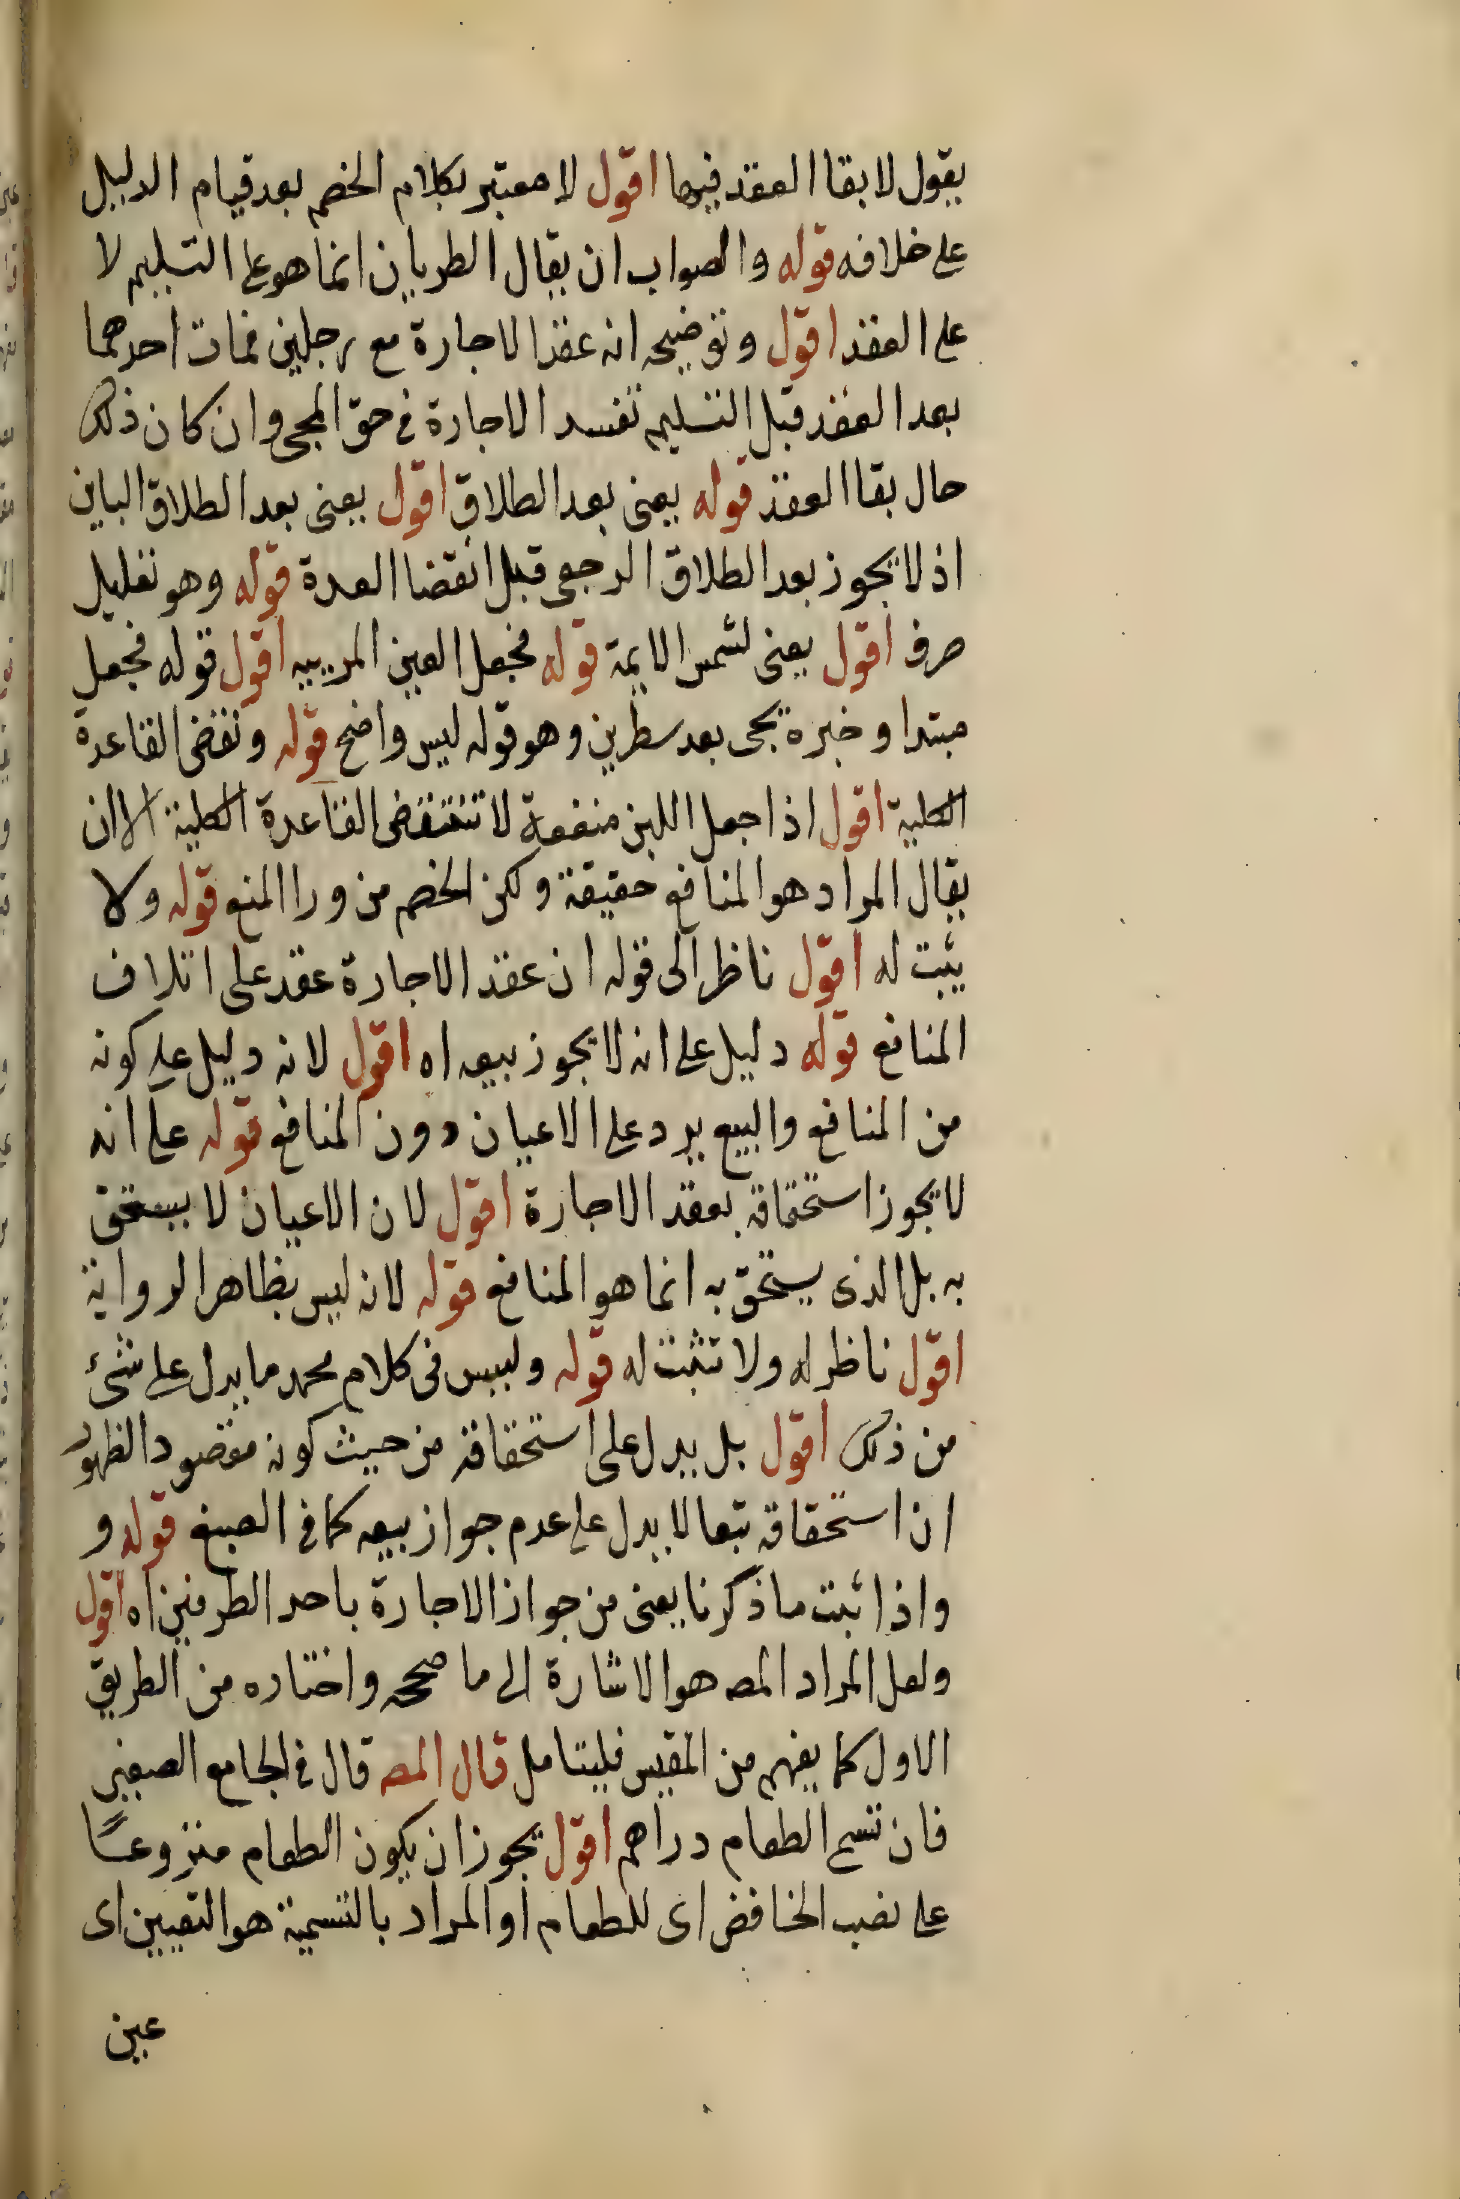 يقول لا بقا العقد فيها اقول لا معتبر بكلام الخصم بعد قيام الدليل
على خلافه قوله والصواب ان يقال الطريان انما هو على التسليم لا
على العقد اقول وتوضيحه انه عقد الاجارة مع رجلين فمات احدهما
بعد العقد قبل التسليم تفسد الاجارة في حق الحى وان كان ذلك
حال بقا العقد قوله يعنى بعد الطلاق اقول يعنى بعد الطلاق الباين
اذ لا يجوز بعد الطلاق الرجعى قبل انقضا العدة قوله وهو تعليل
صرف اقول يعنى لشمس الايمة قوله فجعل العين المرييه اقول قوله فجعل
مبتدا وخبره يجى بعد سطرين وهو قوله ليس واضح قوله ونقض القاعدة
الكلية اقول اذا جعل اللبن منفعة لا تنتقض القاعدة الكلية الا ان
يقال المراد هو المنافع حقيقة ولكن الخصم من ورا المنع قوله ولا
يثبت له اقول ناظر الى قوله ان عقد الاجارة عقد على اتلاف
المنافع قوله دليل على انه لا يجوز بيعه اه اقول لانه دليل على كونه
من المنافع والبيع يرد على الاعيان دون المنافع قوله على انه
لا يجوز استحقاقه بعقد الاجارة اقول لان الاعيان لا يستحق
به بل الذى يستحق به انما هو المنافع قوله لانه ليس بظاهر الرواية
اقول ناظر له ولا تثبت له قوله وليس فى كلام محمد ما يدل على شئ
من ذلك اقول بل يدل على استحقاقه من حيث كونه مقصود الظهور
ان استحقاقه تبعا لا يدل على عدم جواز بيعه كما في الصبغ قوله و
واذا ثبت ما ذكرنا يعنى من جواز الاجارة باحد الطرفين اه اقول
ولعل المراد المص هو الاشارة الى ما صححه واختاره من الطريق
الاول كما يفهم من المقيس فليتامل قال المص قال في الجامع الصغير
فان سمى الطعام دراهم اقول يجوز ان يكون الطعام منزوعا
على نصب الخافض اى للطعام او المراد بالتسمية هو التعيين اى
عين